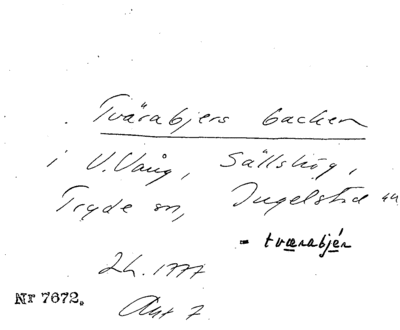 Tvärabjers backen
i V. Vång, Sällshög,
Tryde sn, Ingelstad
- tværabjér
Lh. 1777
Akt 7
Nr 7672.